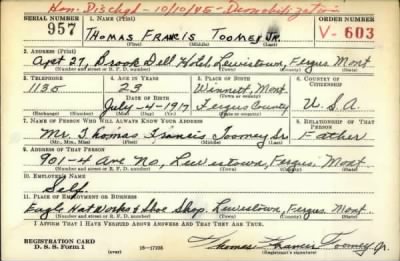 Hon. Dischgd - 10/10/45 - Demobilization
SERIAL NUMBER 1. NAME (Print) ORDER NUMBER
957 THOMAS FRANCIS TOOMEY JR. V-603
(First) (Middle) (Last)
2. ADDRESS (Print)
Apt 27, Brook Dell Hotel Lewistown, Fergus, Mont
(Number and street or R. F. D. number) (Town) (County) (State)
3. TELEPHONE 4. AGE IN YEARS 5. PLACE OF BIRTH 6. COUNTRY OF CITIZENSHIP
1135 23 Winnett, Mont
DATE OF BIRTH (Town or county)
July-4-1917 Fergus County U.S.A.
(Exchange) (Number) (Mo.) (Day) (Yr.) (State or country)
7. NAME OF PERSON WHO WILL ALWAYS KNOW YOUR ADDRESS 8. RELATIONSHIP OF THAT PERSON
Mr. Thomas Francis Toomey Sr Father
(Mr., Mrs., Miss) (First) (Middle) (Last)
9. ADDRESS OF THAT PERSON
901-4 Ave No, Lewistown, Fergus, Mont.
(Number and street or R. F. D. number) (Town) (County) (State)
10. EMPLOYER'S NAME
Self
11. PLACE OF EMPLOYMENT OR BUSINESS
Eagle Hat Works & Shoe Shop. Lewistown, Fergus, Mont.
(Number and street or R. F. D. number) (Town) (County) (State)
I AFFIRM THAT I HAVE VERIFIED ABOVE ANSWERS AND THAT THEY ARE TRUE.
REGISTRATION CARD
D. S. S. Form 1 16-17105 Thomas Francis Toomey Jr.
(Registrant's signature)